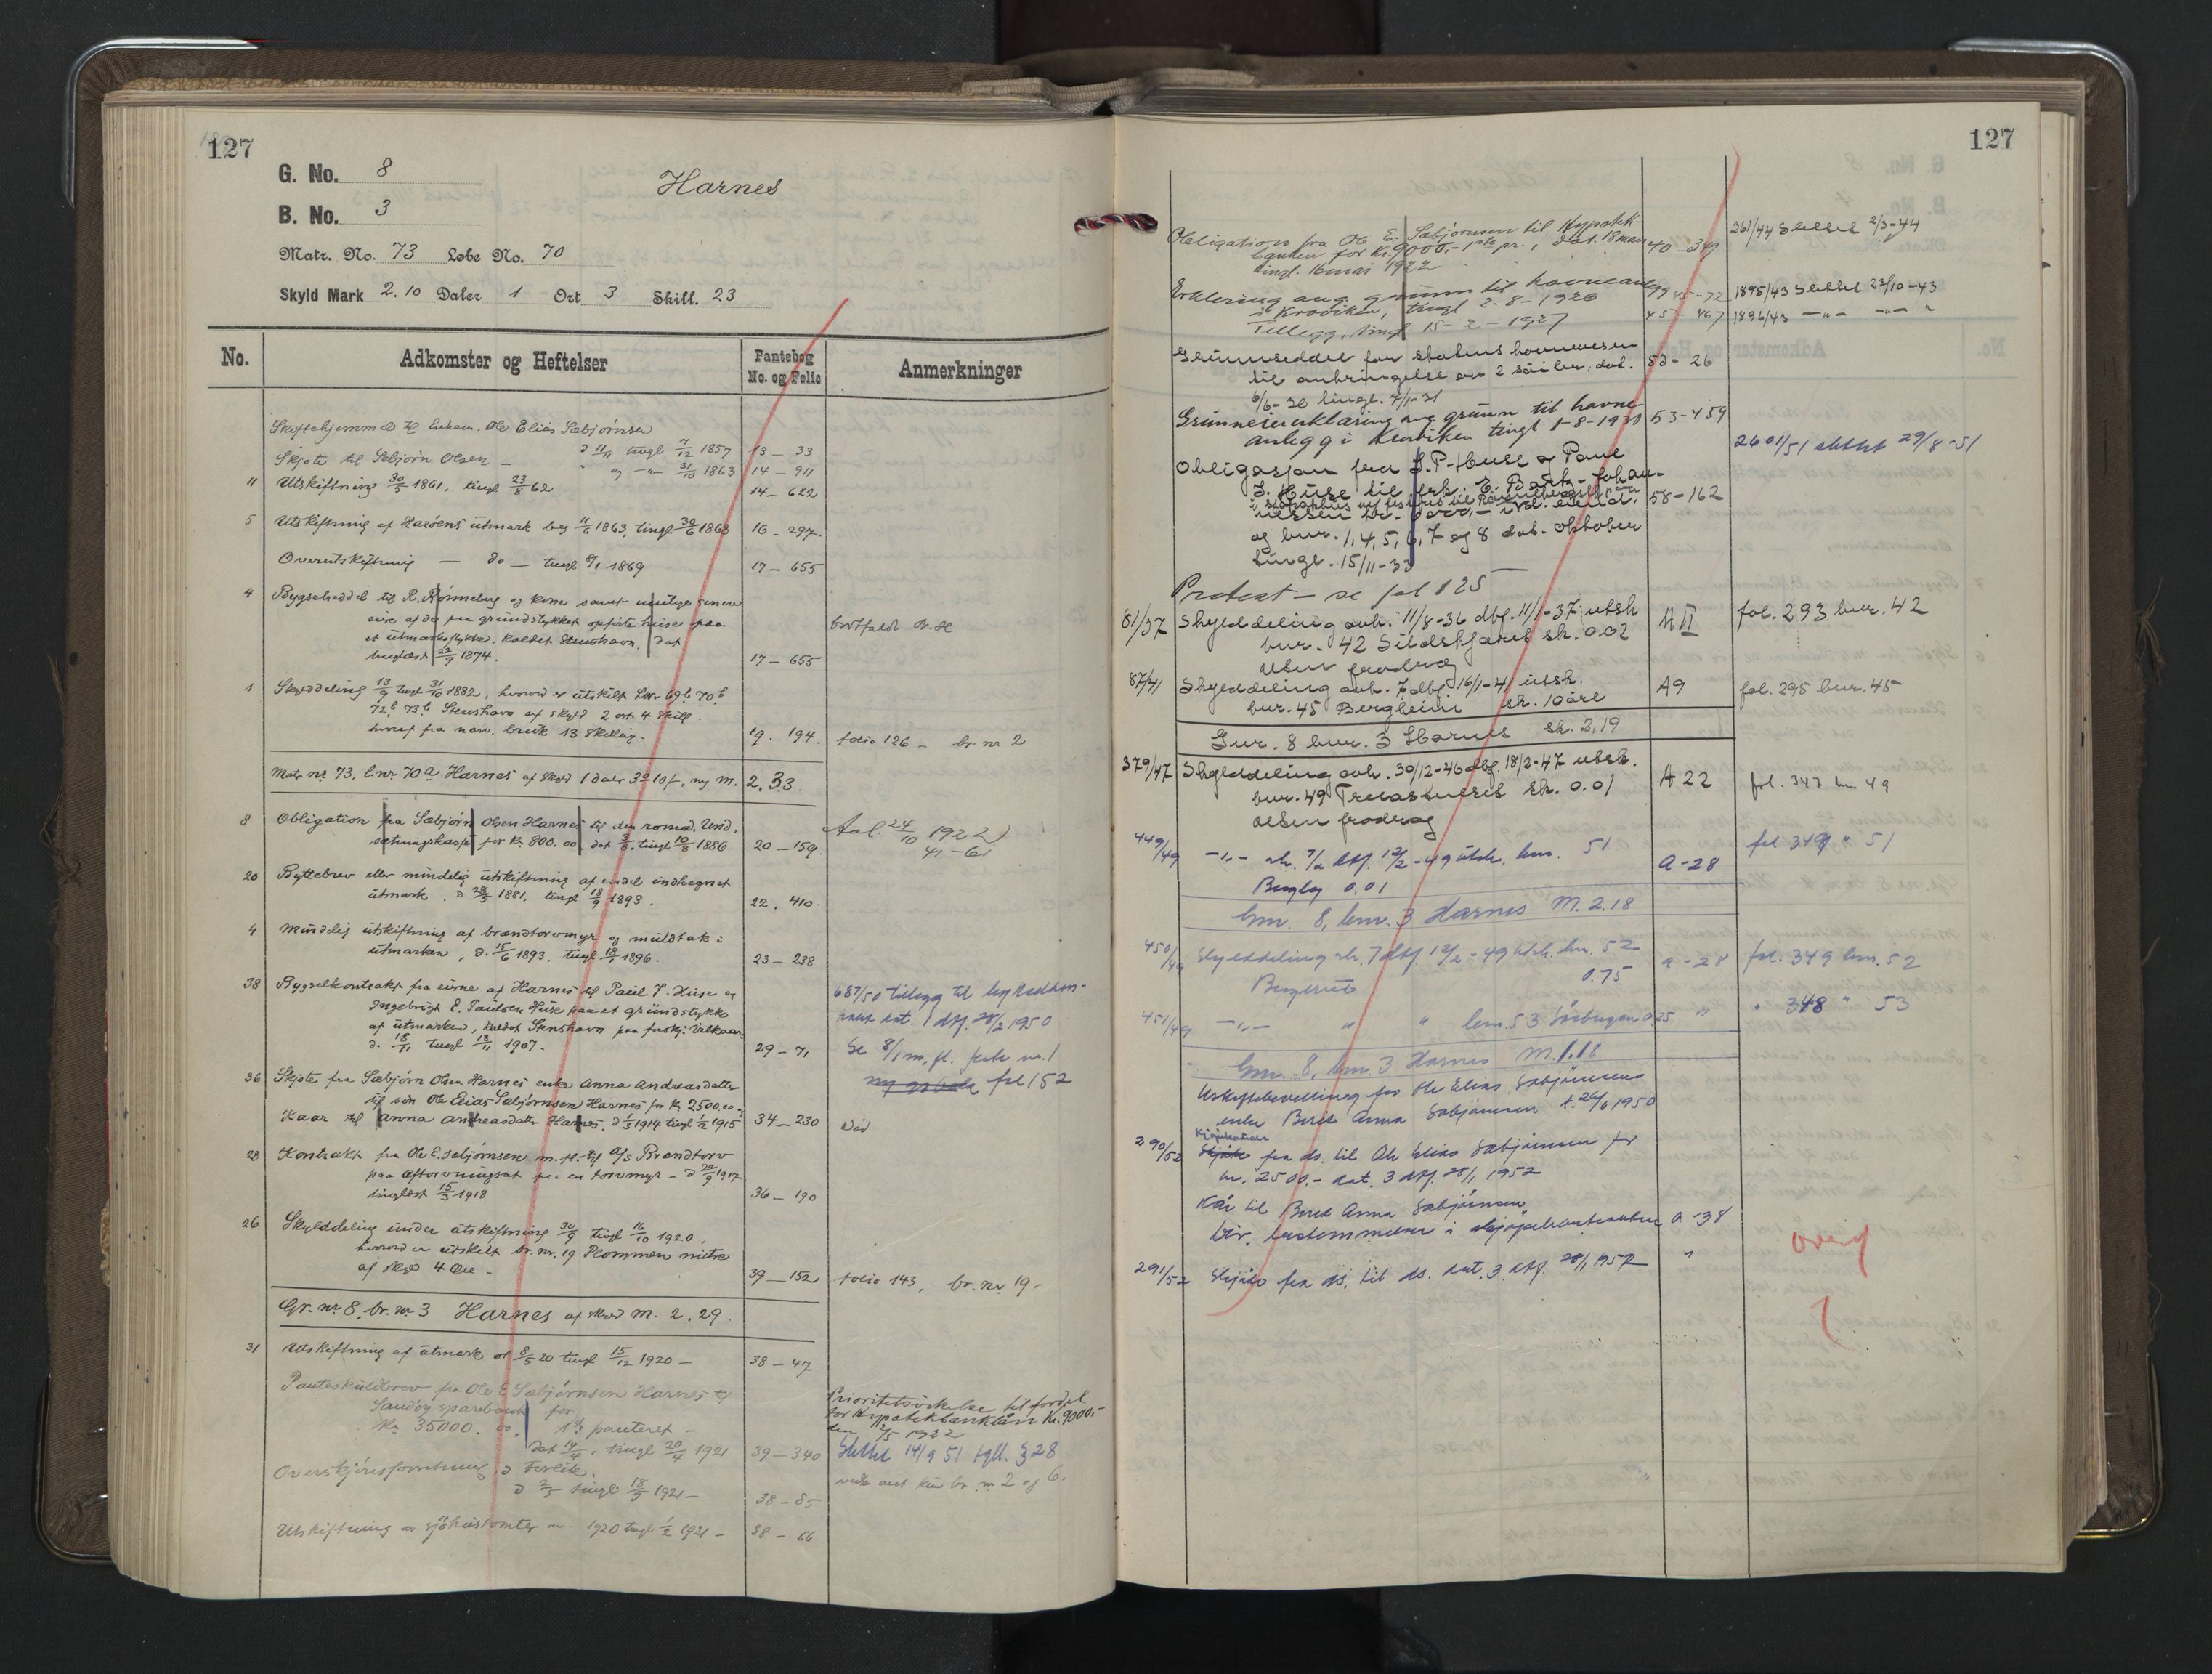 127
G. No. 8
Harnes
B. No. 3
Matr. No. 73 Løbe No. 70
Skyld Mark 2.10 Daler 1 Ort 3 Skill. 23
No. Adkomster og Heftelser Pantebog No. og Folio Anmerkninger
Skiftehjemmel til Enkem. Ole Elias Sæbjørnsen
d 11/11 tingl 7/12 1857 13 — 33
Skjøte til Sebjørn Olsen — og — " — 31/10 1863 14 — 911
11 Utskiftning 30/5 1861, tingl 23/8 62 14 — 622
5 Utskiftning af Harøens utmark beg 11/6 1863, tingl 30/6 1868 16 - 297.
Overutskiftning — do — tingl 8/1 1869 17 — 655
4 Bygselseddel til R. Rønneberg og kone samt mulige senere
eiere af de paa grundstykket opførte huse paa
et utmarksstykke, kaldet Stenshavn, dat bortfaldt
tinglæst 22/9 1874. 17 — 655
1 Skylddeling 13/9 tingl 31/10 1882, hvorved er utskilt Lnr 69 b. 70 b
72 b 73 b Stenshavn af skyld 2 ort 4 skill.
hvoraf fra nærv. bruk 13 skilling. 19. 194. folio 126 — br. nr 2
Matr nr 73, l.nr 70 a Harnes af skyld 1 daler 3 o 10 s, ny m. 2.33.
8 Obligation fra Sæbjørn Olsen Harnes til den romsd. Und.
sætningskasse for Kr. 800.00 dat 3/8, tingl 10/8 1886 20 — 159. Aal. 24/10 1922)
41 — 61
20 Byttebrev eller mindelig utskiftning af endel indhegnet
utmark. d 28/5 1881, tingl 18/9 1893. 22. 410.
4 Mindelig utskiftning af brændtorvmyr og muldtak i
utmarken, d. 15/6 1893, tingl 18/1 1896. 23 — 238
38 Bygselkontrakt fra eierne af Harnes til Paul J. Huse og
Ingebrigt E. Paulsen Huse paa et grundstykke
af utmarken, kaldet Stenshavn paa forskj. vilkaar
d. 18/11 tingl 18/11 1907. 29 — 71
687/50 tillegg til bygselkon-
trakt dat. 1 dbf. 28/2 1950
Se 8/1 m. fl. feste nr. 1
fol 152
36 Skjøte fra Sæbjørn Olsen Harnes enke Anna Andreasdatter
til søn Ole Elias Sæbjørnsen Harnes for Kr. 2500.00 og
Kaar til Anna Andreasdatter Harnes, d 1/5 1914 tingl 1/2 1915 34 — 230 død
28 Kontrakt fra Ole E. Sæbjørnsen m. fl. til A/S Brændtorv
paa Optorvningsret paa en torvmyr — d 20/9 1917
tinglæst 15/3 1918 36 — 190
26 Skylddeling under utskiftning 30/9 tingl 16/10 1920,
hvorved er utskilt br. nr. 19 Plommen nietre
af skyld 4 Øre — 39 — 152 folio 143, br. nr 19 —
Gr. nr 8, br. nr 3 Harnes af skyld m. 2.29.
31 Utskiftning af utmark d 8/5 20 tingl 15/12 1920 — 38 — 47
Panteskuldbrev fra Ole E Sæbjørnsen Harnes til
Sandøy sparebank for
Kr 35000.00, 1ste panteret —
dat 14/4, tingl 20/4 1921 39 — 340
Prioritetsvikelse til fordel
for Hypotekbanklån Kr. 9000.—
den 12/5 1922
Slettet 14/9 51 tgll. § 28
Overskjønsforretning
d 2/5 tingl 18/5 1921 — 38 — 85 br. nr 2 og 6.
Utskiftning av sjøhustomter 1920 tingl 1/2 1921 — 38 — 66
127
Obligation fra Ole E. Sæbjørnsen til Hypotek-
banken for Kr. 9000,— 1ste pr., dat. 18 mars 40 — 349 261/44 Slettet 2/3-44
tingl. 16 mai 1922
Erklæring ang. grunn til havneanlegg 45 — 72 1895/43 Slettet 23/10-43
i Kroviken, tingl 2-8-1926 45 — 467 1896/43 — " — — " — "
Tillegg, tingl. 15-2-1927
Grunnseddel for statens havnevesen
til anbringelse av 2 søiler, dat. 53 - 26
6/6-30 tingl. 7/1-31
Grunneiererklæring ang. grunn til havne- 53-459
anlegg i Kroviken tingl 1-8-1931
Obligasjon fra J. P. Huse og Paul 2601/51 slettet 29/8-51
J. Huse til frk. E. Bach-Johan-
nessen kr. 6000,— 58-162
og bnr. 1, 4, 5, 6, 7 og 8 dat. oktober
tingl. 15/11-33
Protest — se fol 125 —
81/37 Skylddeling avh. 11/8-36 dbf. 11/1-37: utsk A II fol. 293 bnr. 42
bnr. 42 Sildskjæret sk. 0.02
uten fradrag
87/41 Skylddeling avh. 7 dbf. 16/1-41 utsk. A9 fol. 295 bnr. 45
bnr. 45 Bergheim sk. 10 øre
Gnr. 8 bnr. 3 Harnes sk. 2,19
379/47 Skylddeling avh. 30/12-46 dbf. 18/2-47 utsk. A 22 fol. 347 bnr. 49
bnr. 49 sk. 0.01
uten fradrag
449/49 — " — avh. 7/2 dbf. 12/2-49 utsk. bnr. 51 a-28 fol 349 " 51
Bergly 0.01
Gnr. 8, bnr. 3 Harnes M. 2.18
450/49 Skylddeling avh. 7 dbf. 12/2-49 utsk. bnr. 52 a-28 fol. 349 bnr. 52
0.75
451/49 — " — " " bnr. 53 0.25 " " 348 " 53
Gnr. 8, bnr. 3 Harnes M. 1.18
Uskiftebevilling for Ole Elias Sæbjørnsens
enke Berit Anna Sæbjørnsen t. 24/6 1950
290/52 Kjøpekontrakt
Skjøte fra ds. til Ole Elias Sæbjørnsen for
kr. 2500.— dat. 3 dbf. 28/1 1952
Kår til Berit Anna Sæbjørnsen
Div. bestemmelser i skjøpekontrakten a-38
291/52 Skjøte fra ds. til ds. dat. 3. dbf. 28/1 1952 "